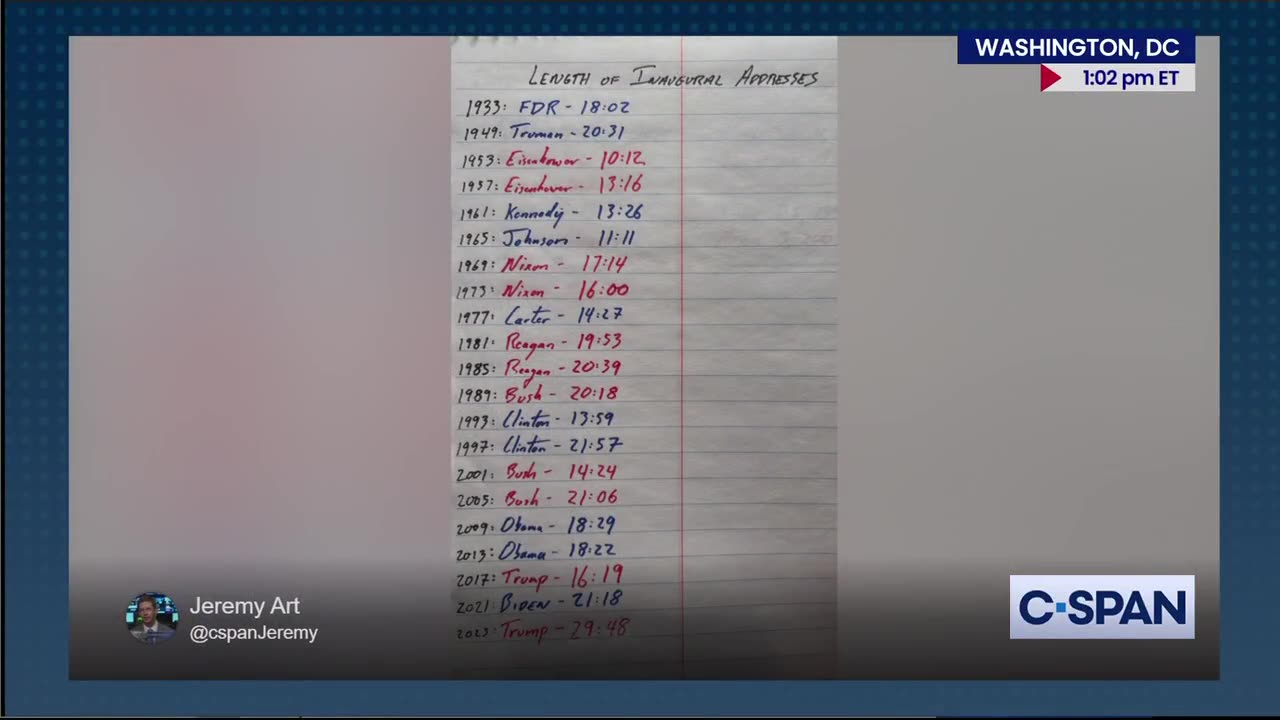 WASHINGTON, DC
1:02 pm ET
LENGTH OF INAUGURAL ADDRESSES
1933: FDR - 18:02
1949: Truman - 20:31
1953: Eisenhower - 10:12
1957: Eisenhower - 13:16
1961: Kennedy - 13:26
1965: Johnson - 11:11
1969: Nixon - 17:14
1973: Nixon - 16:00
1977: Carter - 14:27
1981: Reagan - 19:53
1985: Reagan - 20:39
1989: Bush - 20:18
1993: Clinton - 13:59
1997: Clinton - 21:57
2001: Bush - 14:24
2005: Bush - 21:06
2009: Obama - 18:29
2013: Obama - 18:22
2017: Trump - 16:19
2021: BIDEN - 21:18
2025: Trump - 29:48
Jeremy Art
@cspanJeremy
C·SPAN